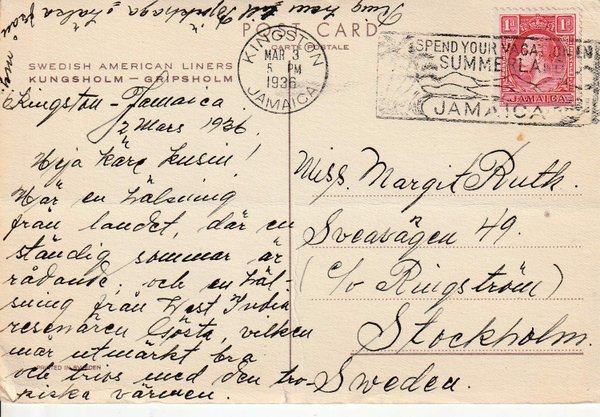 Ring
POST CARD
CARTE POSTALE
SWEDISH AMERICAN LINERS
KUNGSHOLM – GRIPSHOLM
KINGSTON
MAR 3
5 PM
1936
JAMAICA
SPEND YOUR VACATION IN
SUMMERLAND
JAMAICA
1D 1D
JAMAICA
Kingston – Jamaica
2 Mars 1936
Heja kära kusin!
Här en hälsning
från landet, där en
ständig sommar är
rådande, och en häl-
sning från West India
resenären Gösta, vilken
mår utmärkt bra
och trivs med den tro-
piska värmen.
Miss. Margit Ruth.
Sveavägen 49.
(c/o Ringström)
Stockholm.
Sweden.
PRINTED IN SWEDEN